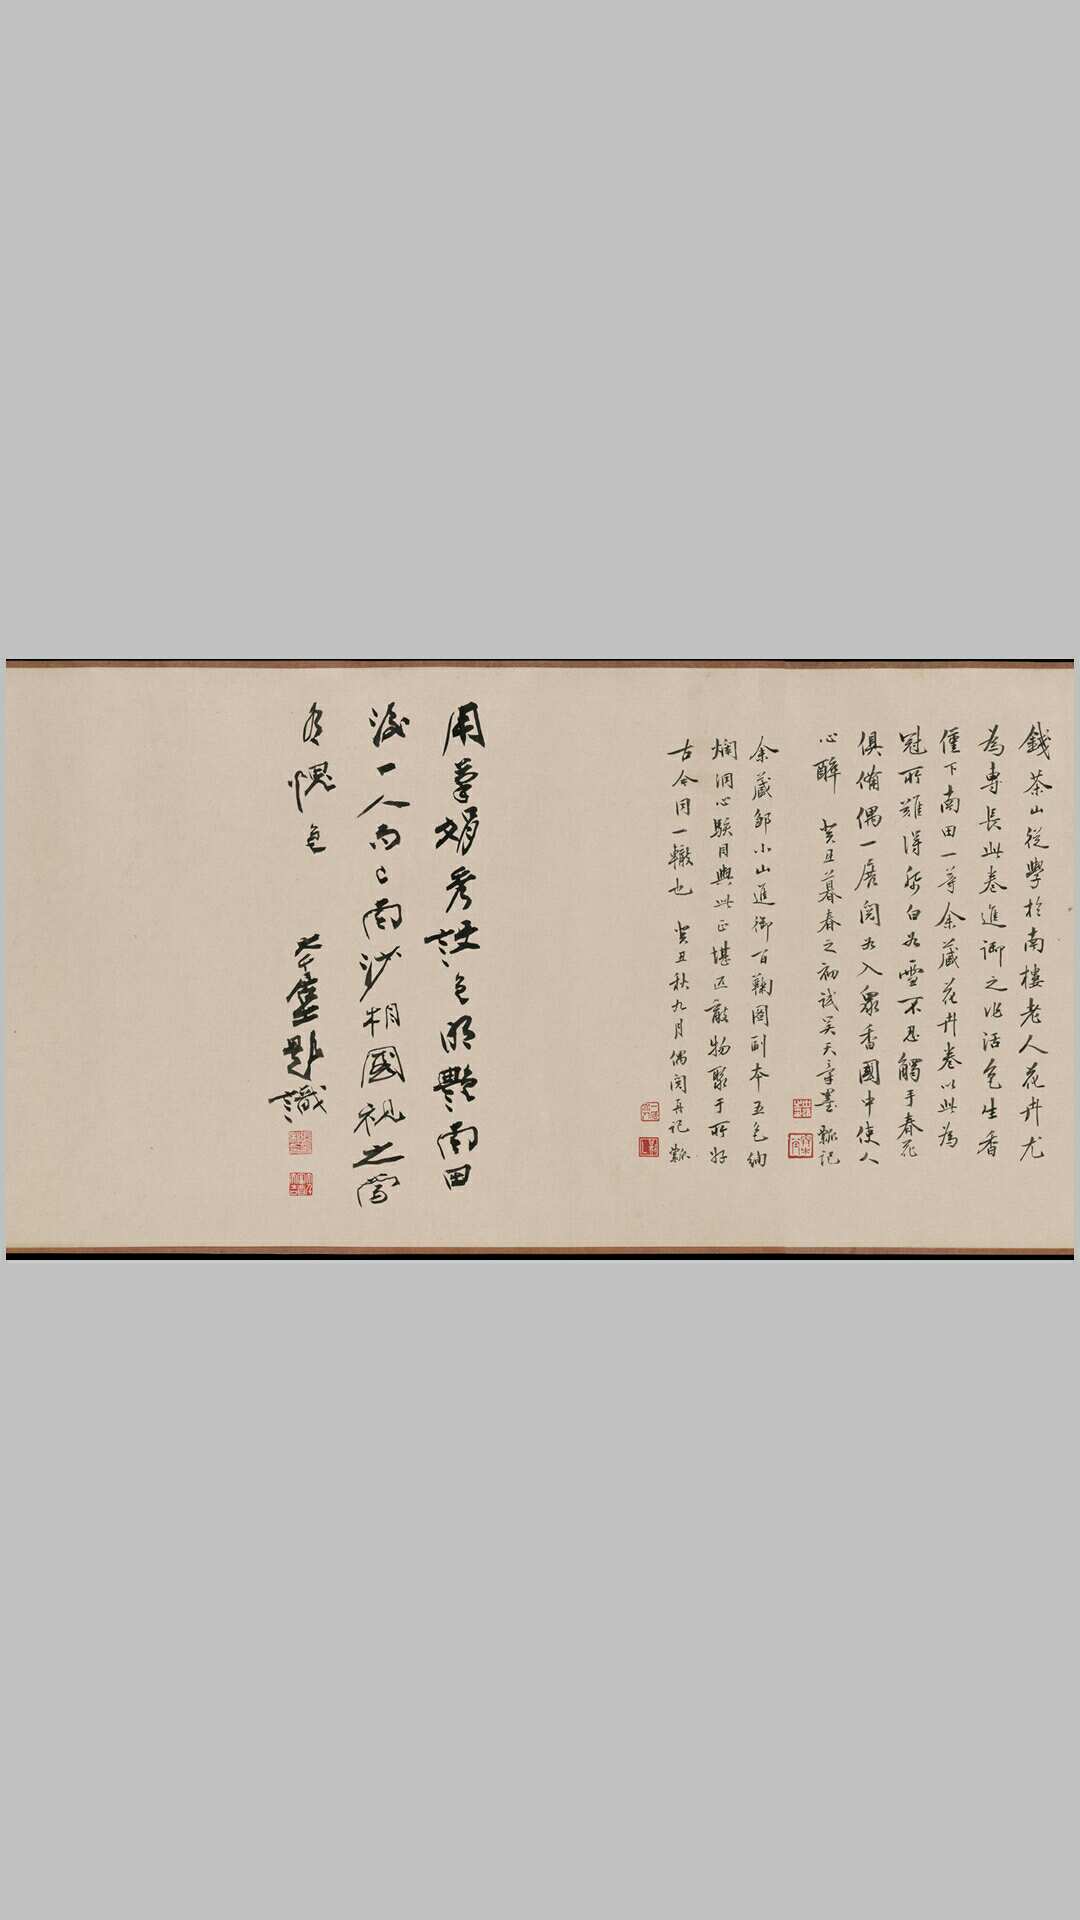 錢茶山從學於南樓老人花卉尤
為專長此卷進御之作活色生香
僅下南田一等余藏花卉卷以此為
冠所難得水白如雪不忍觸手春花
俱備偶一展閱如入眾香國中使人
心醉 癸丑暮春之初試吳天章墨 瓢記
余藏鄒小山進御百鞠圖副本五色絢
爛洞心駭目與此正堪匹敵物聚于所好
古今同一轍也 癸丑秋九月偶閱再記 瓢
用筆娟秀設色明艷南田
後一人而已南沙相國視之當
有愧色
大千居士題識